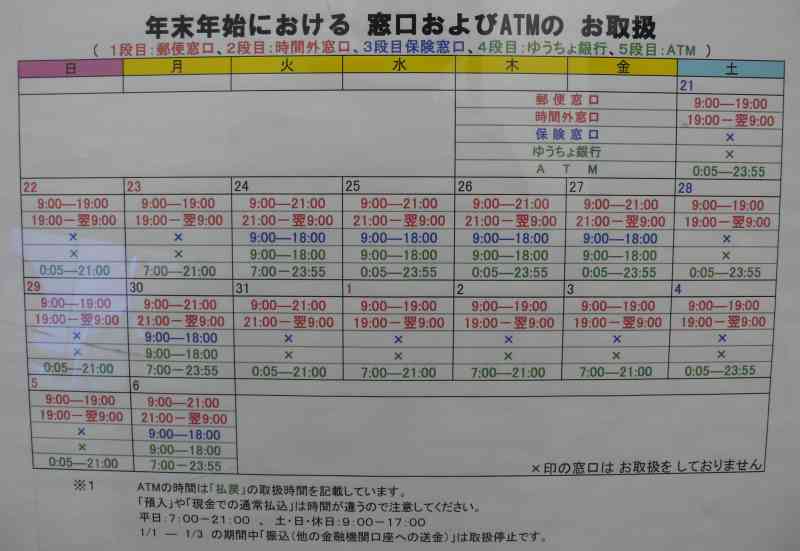 年末年始における 窓口およびATMの お取扱
( 1段目:郵便窓口、2段目:時間外窓口、3段目保険窓口、4段目:ゆうちょ銀行、5段目:ATM )
日 月 火 水 木 金 土
21
郵便窓口 9:00―19:00
時間外窓口 19:00－翌9:00
保険窓口 ×
ゆうちょ銀行 ×
ATM 0:05―23:55
22 23 24 25 26 27 28
9:00―19:00 9:00―19:00 9:00―21:00 9:00―21:00 9:00―21:00 9:00―21:00 9:00―19:00
19:00－翌9:00 19:00－翌9:00 21:00－翌9:00 21:00－翌9:00 21:00－翌9:00 21:00－翌9:00 19:00－翌9:00
× × 9:00―18:00 9:00―18:00 9:00―18:00 9:00―18:00 ×
× × 9:00―18:00 9:00―18:00 9:00―18:00 9:00―18:00 ×
0:05―21:00 7:00―21:00 7:00－23:55 0:05―23:55 0:05―23:55 0:05―23:55 0:05―23:55
29 30 31 1 2 3 4
9:00―19:00 9:00―21:00 9:00―21:00 9:00―19:00 9:00―19:00 9:00―19:00 9:00―19:00
19:00－翌9:00 21:00－翌9:00 21:00－翌9:00 19:00－翌9:00 19:00－翌9:00 19:00－翌9:00 19:00－翌9:00
× 9:00―18:00 × × × × ×
× 9:00―18:00 × × × × ×
0:05―21:00 7:00－23:55 0:05―21:00 7:00―21:00 7:00―21:00 7:00―21:00 0:05―23:55
5 6
9:00―19:00 9:00―21:00
19:00－翌9:00 21:00－翌9:00
× 9:00―18:00
× 9:00―18:00
0:05―21:00 7:00－23:55
×印の窓口は お取扱を しておりません
※1 ATMの時間は「払戻」の取扱時間を記載しています。
「預入」や「現金での通常払込」は時間が違うので注意してください。
平日:7:00－21:00 、土・日・休日:9:00－17:00
1/1 ― 1/3 の期間中「振込(他の金融機関口座への送金)」は取扱停止です。